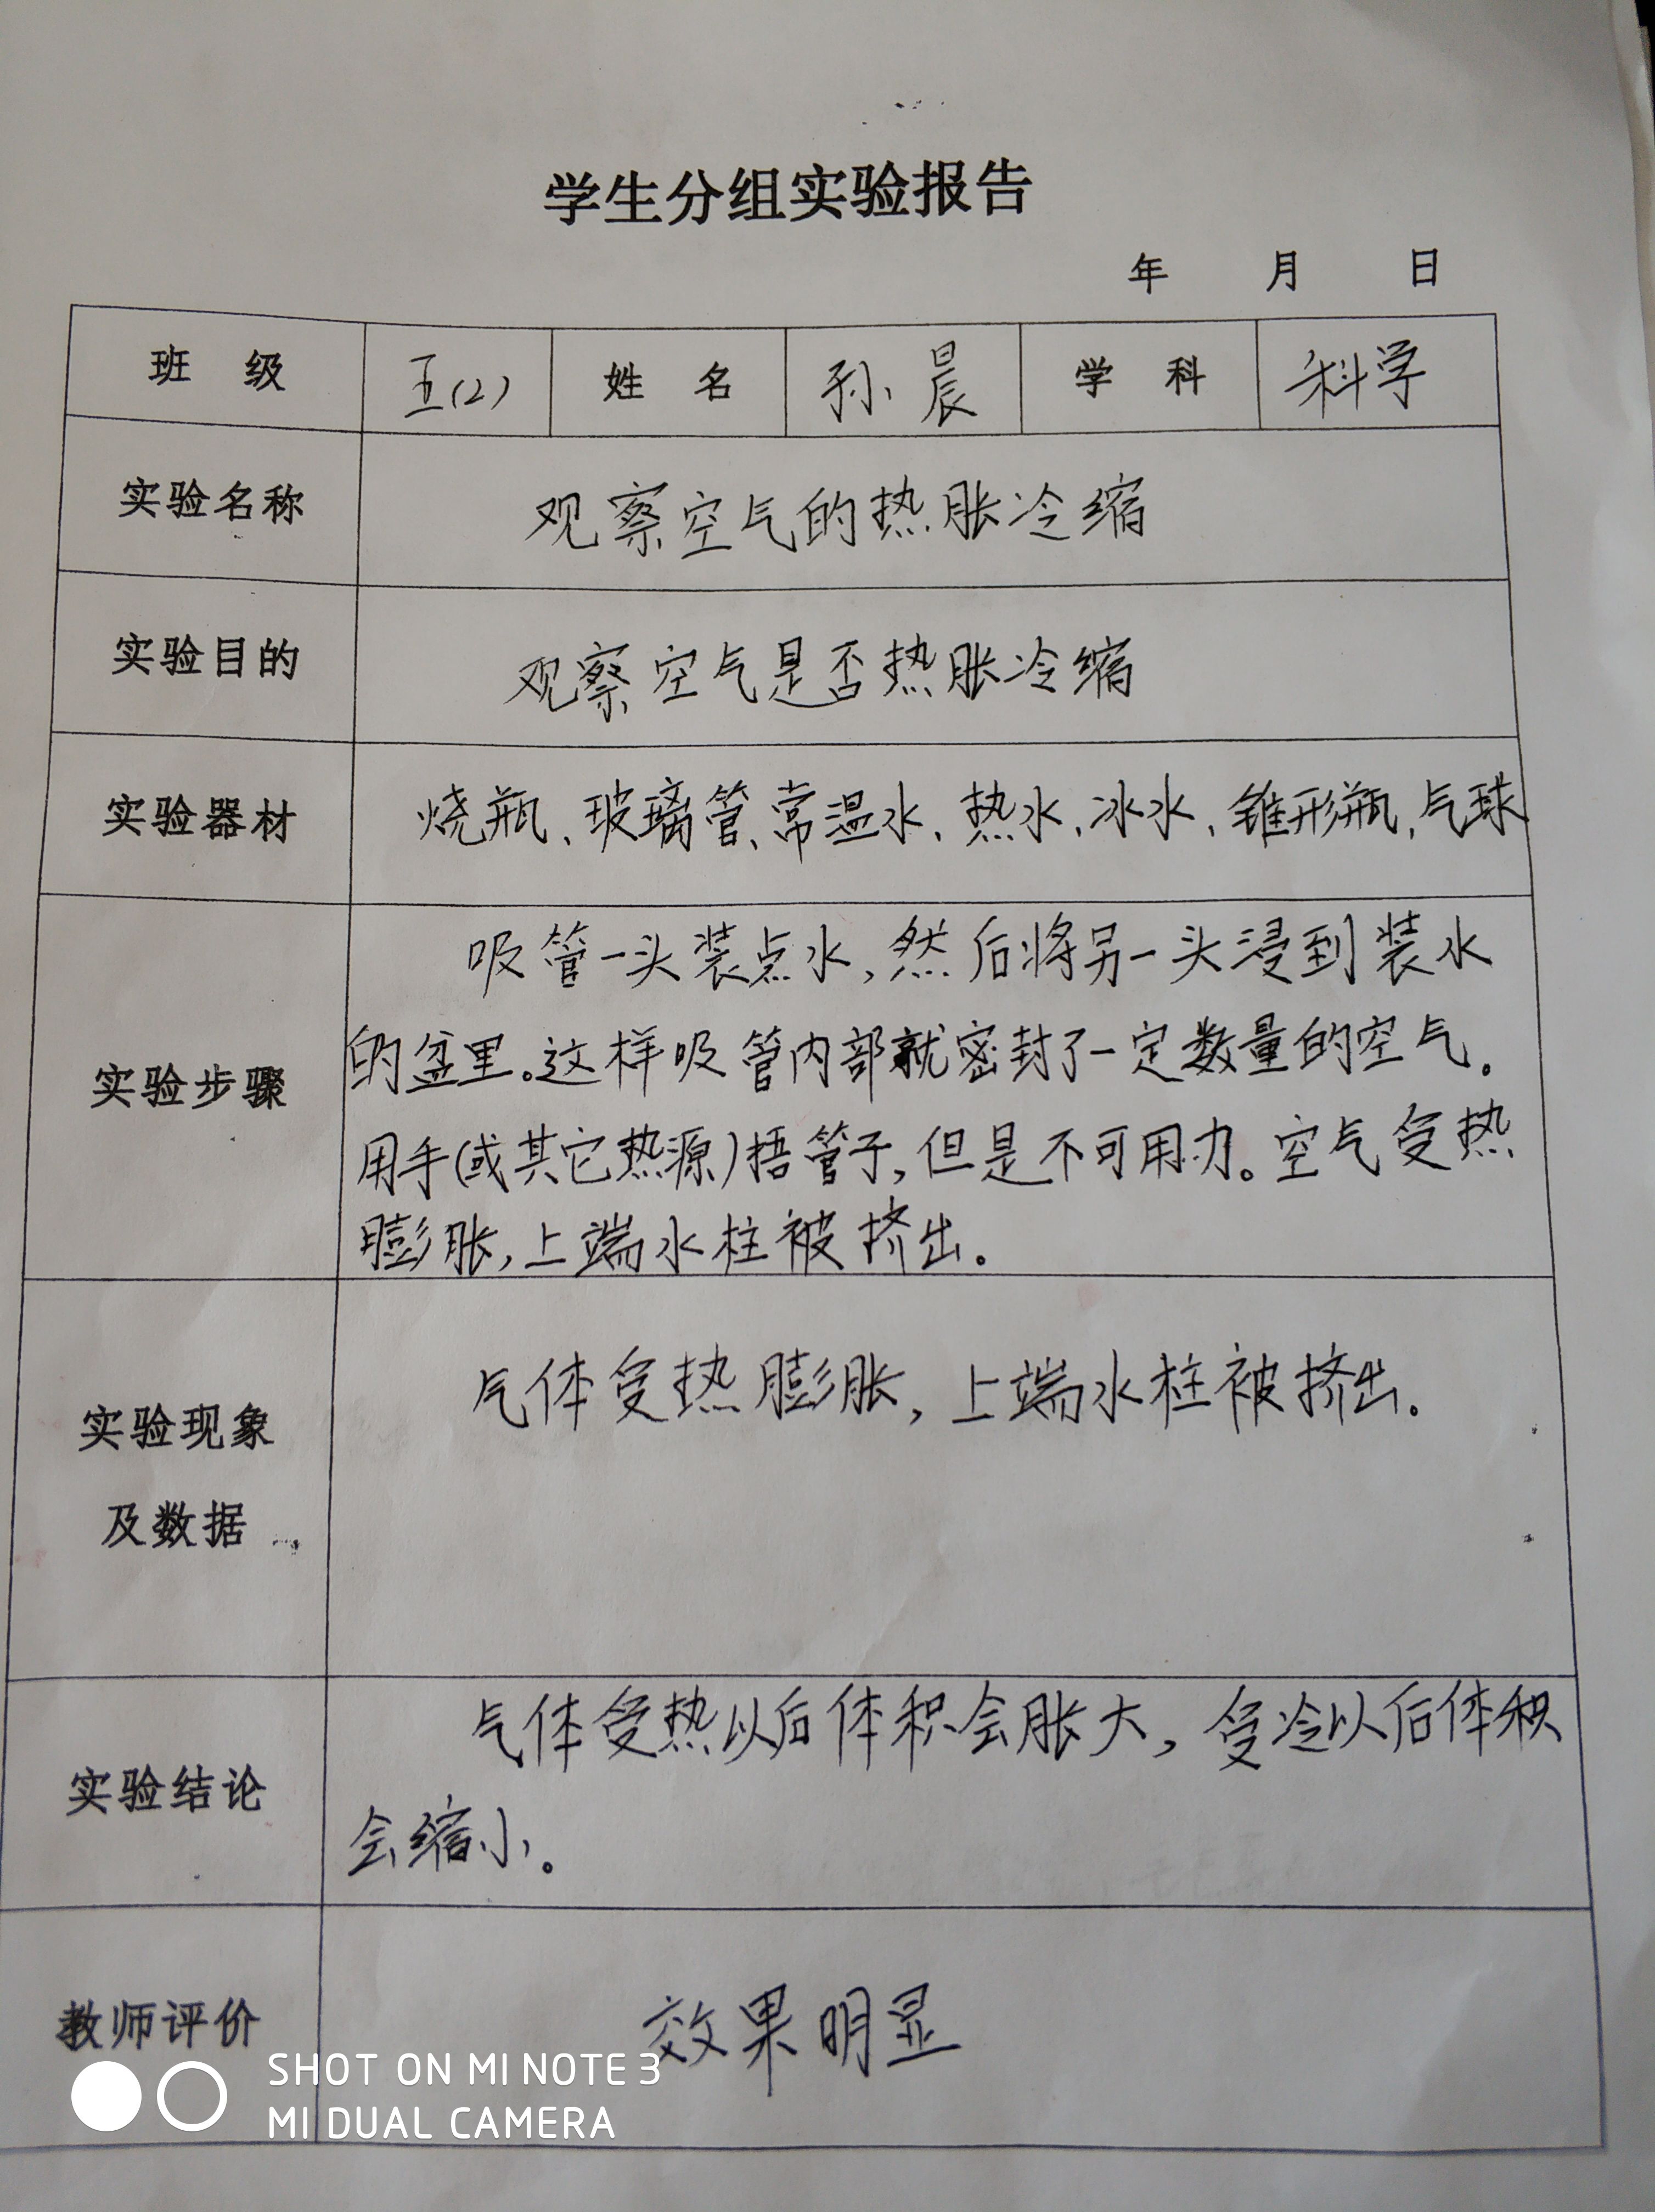 学生分组实验报告
年 月 日
班 级 五(2) 姓 名 孙晨 学 科 科学
实验名称 观察空气的热胀冷缩
实验目的 观察空气是否热胀冷缩
实验器材 烧瓶、玻璃管、常温水、热水、冰水、锥形瓶、气球
吸管一头装点水,然后将另一头浸到装水
的盆里。这样吸管内部就密封了一定数量的空气。
实验步骤
用手(或其它热源)捂管子,但是不可用力。空气受热
膨胀,上端水柱被挤出。
气体受热膨胀,上端水柱被挤出.
实验现象
及数据
气体受热以后体积会胀大,受冷以后体积
实验结论
会缩小。
教师评价 效果明显
SHOT ON MI NOTE 3
MI DUAL CAMERA